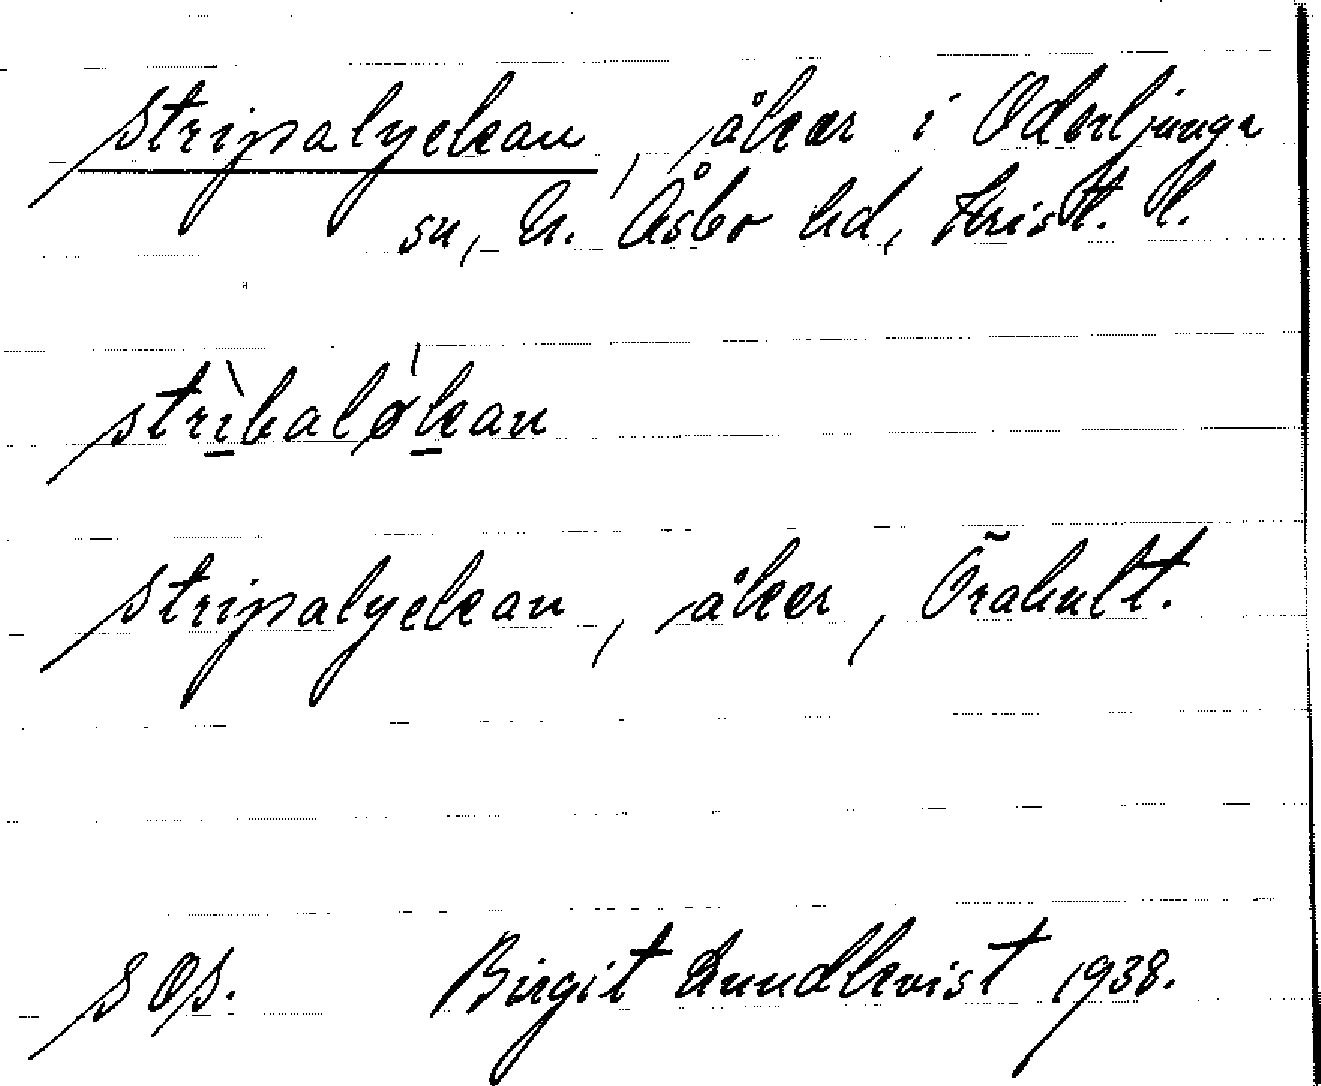 Stripalyckan, åker i Oderljunga
sn, N. Åsbo hd, Krist. l.
strìbaløkan
Stripalyckan, åker, Örahult.
s Os. Birgit Lundkvist 1938.